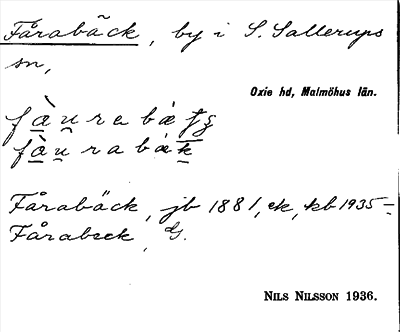 Fårabäck, by i S. Sallerups
sn,
Oxie hd, Malmöhus län.
Fårabäck, jb 1881, ek, kb 1935 –
Fårabeck, G.
NILS NILSSON 1936.